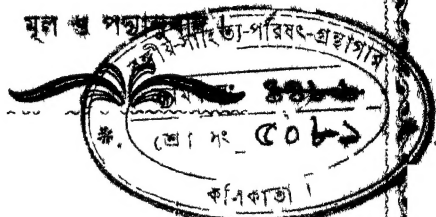 মূল ও পদ্যানুবাদ।
বঙ্গীয়-সাহিত্য-পরিষৎ-গ্রন্থাগার
শ্রে। নং ৫০৮১
কলিকাতা।